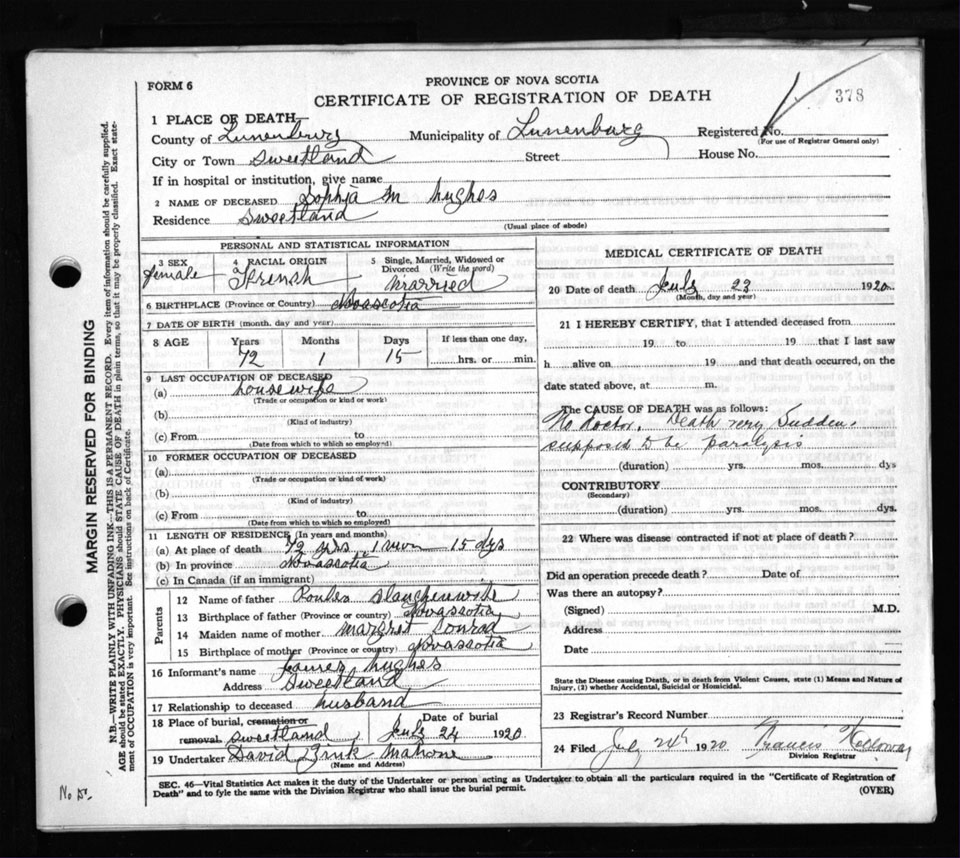 FORM 6
PROVINCE OF NOVA SCOTIA
CERTIFICATE OF REGISTRATION OF DEATH
378
1 PLACE OF DEATH—
County of Lunenburg Municipality of Lunenburg Registered No.
(For use of Registrar General only)
City or Town Sweetland Street House No.
If in hospital or institution, give name
2 NAME OF DECEASED Sophia M Hughes
Residence Sweetland
(Usual place of abode)
PERSONAL AND STATISTICAL INFORMATION
3 SEX 4 RACIAL ORIGIN 5 Single, Married, Widowed or Divorced (Write the word)
female French Married
6 BIRTHPLACE (Province or Country) Novascotia
7 DATE OF BIRTH (month, day and year)
8 AGE Years Months Days If less than one day,
72 1 15 hrs. or min.
9 LAST OCCUPATION OF DECEASED
(a) housewife
(Trade or occupation or kind of work)
(b)
(Kind of industry)
(c) From to
(Date from which to which so employed)
10 FORMER OCCUPATION OF DECEASED
(a)
(Trade or occupation or kind of work)
(b)
(Kind of industry)
(c) From to
(Date from which to which so employed)
11 LENGTH OF RESIDENCE (In years and months)
(a) At place of death 72 yrs 1 mon 15 dys
(b) In province Novascotia
(c) In Canada (if an immigrant)
Parents
12 Name of father
13 Birthplace of father (Province or country) Novascotia
14 Maiden name of mother Margret Conrad
15 Birthplace of mother (Province or country) Novascotia
16 Informant's name James Hughes
Address Sweetland
17 Relationship to deceased husband
18 Place of burial, cremation or removal. Date of burial
Sweetland July 24 1920
19 Undertaker David Zink Mahone
(Name and Address)
MEDICAL CERTIFICATE OF DEATH
20 Date of death July 23 1920
(Month, day and year)
21 I HEREBY CERTIFY, that I attended deceased from
19 to 19 that I last saw
h alive on 19 and that death occurred, on the
date stated above, at m.
The CAUSE OF DEATH was as follows:
No doctor. Death very Sudden.
supposed to be paralysis
(duration) yrs. mos. dys
CONTRIBUTORY
(Secondary)
(duration) yrs. mos. dys.
22 Where was disease contracted if not at place of death?
Did an operation precede death? Date of
Was there an autopsy?
(Signed) M.D.
Address
Date
State the Disease causing Death, or in death from Violent Causes, state (1) Means and Nature of
Injury, (2) whether Accidental, Suicidal or Homicidal.
23 Registrar's Record Number
24 Filed July 24th 1920 Francis
Division Registrar
SEC. 46—Vital Statistics Act makes it the duty of the Undertaker or person acting as Undertaker to obtain all the particulars required in the "Certificate of Registration of
Death" and to fyle the same with the Division Registrar who shall issue the burial permit.
(OVER)
MARGIN RESERVED FOR BINDING
N.B.—WRITE PLAINLY WITH UNFADING INK—THIS IS A PERMANENT RECORD. Every item of information should be carefully supplied.
AGE should be stated EXACTLY. PHYSICIANS should STATE CAUSE OF DEATH in plain terms, so that it may be properly classified. Exact state-
ment of OCCUPATION is very important. See instructions on back of Certificate.